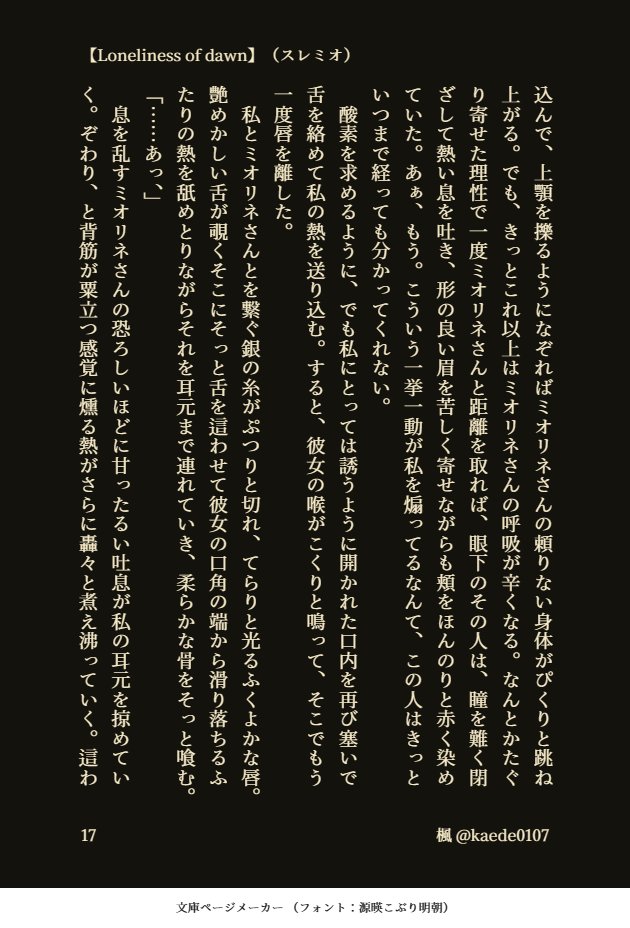 【Loneliness of dawn】（スレミオ）
込んで、上顎を擽るようになぞればミオリネさんの頼りない身体がぴくりと跳ね
上がる。でも、きっとこれ以上はミオリネさんの呼吸が辛くなる。なんとかたぐ
り寄せた理性で一度ミオリネさんと距離を取れば、眼下のその人は、瞳を難く閉
ざして熱い息を吐き、形の良い眉を苦しく寄せながらも頬をほんのりと赤く染め
ていた。あぁ、もう。こういう一挙一動が私を煽ってるなんて、この人はきっと
いつまで経っても分かってくれない。
酸素を求めるように、でも私にとっては誘うように開かれた口内を再び塞いで
舌を絡めて私の熱を送り込む。すると、彼女の喉がこくりと鳴って、そこでもう
一度唇を離した。
私とミオリネさんとを繋ぐ銀の糸がぷつりと切れ、てらりと光るふくよかな唇。
艶めかしい舌が覗くそこにそっと舌を這わせて彼女の口角の端から滑り落ちるふ
たりの熱を舐めとりながらそれを耳元まで連れていき、柔らかな骨をそっと喰む。
「……あっ、」
息を乱すミオリネさんの恐ろしいほどに甘ったるい吐息が私の耳元を掠めてい
く。ぞわり、と背筋が粟立つ感覚に燻る熱がさらに轟々と煮え沸っていく。這わ
17
楓 @kaede0107
文庫ページメーカー（フォント：源暎こぶり明朝）